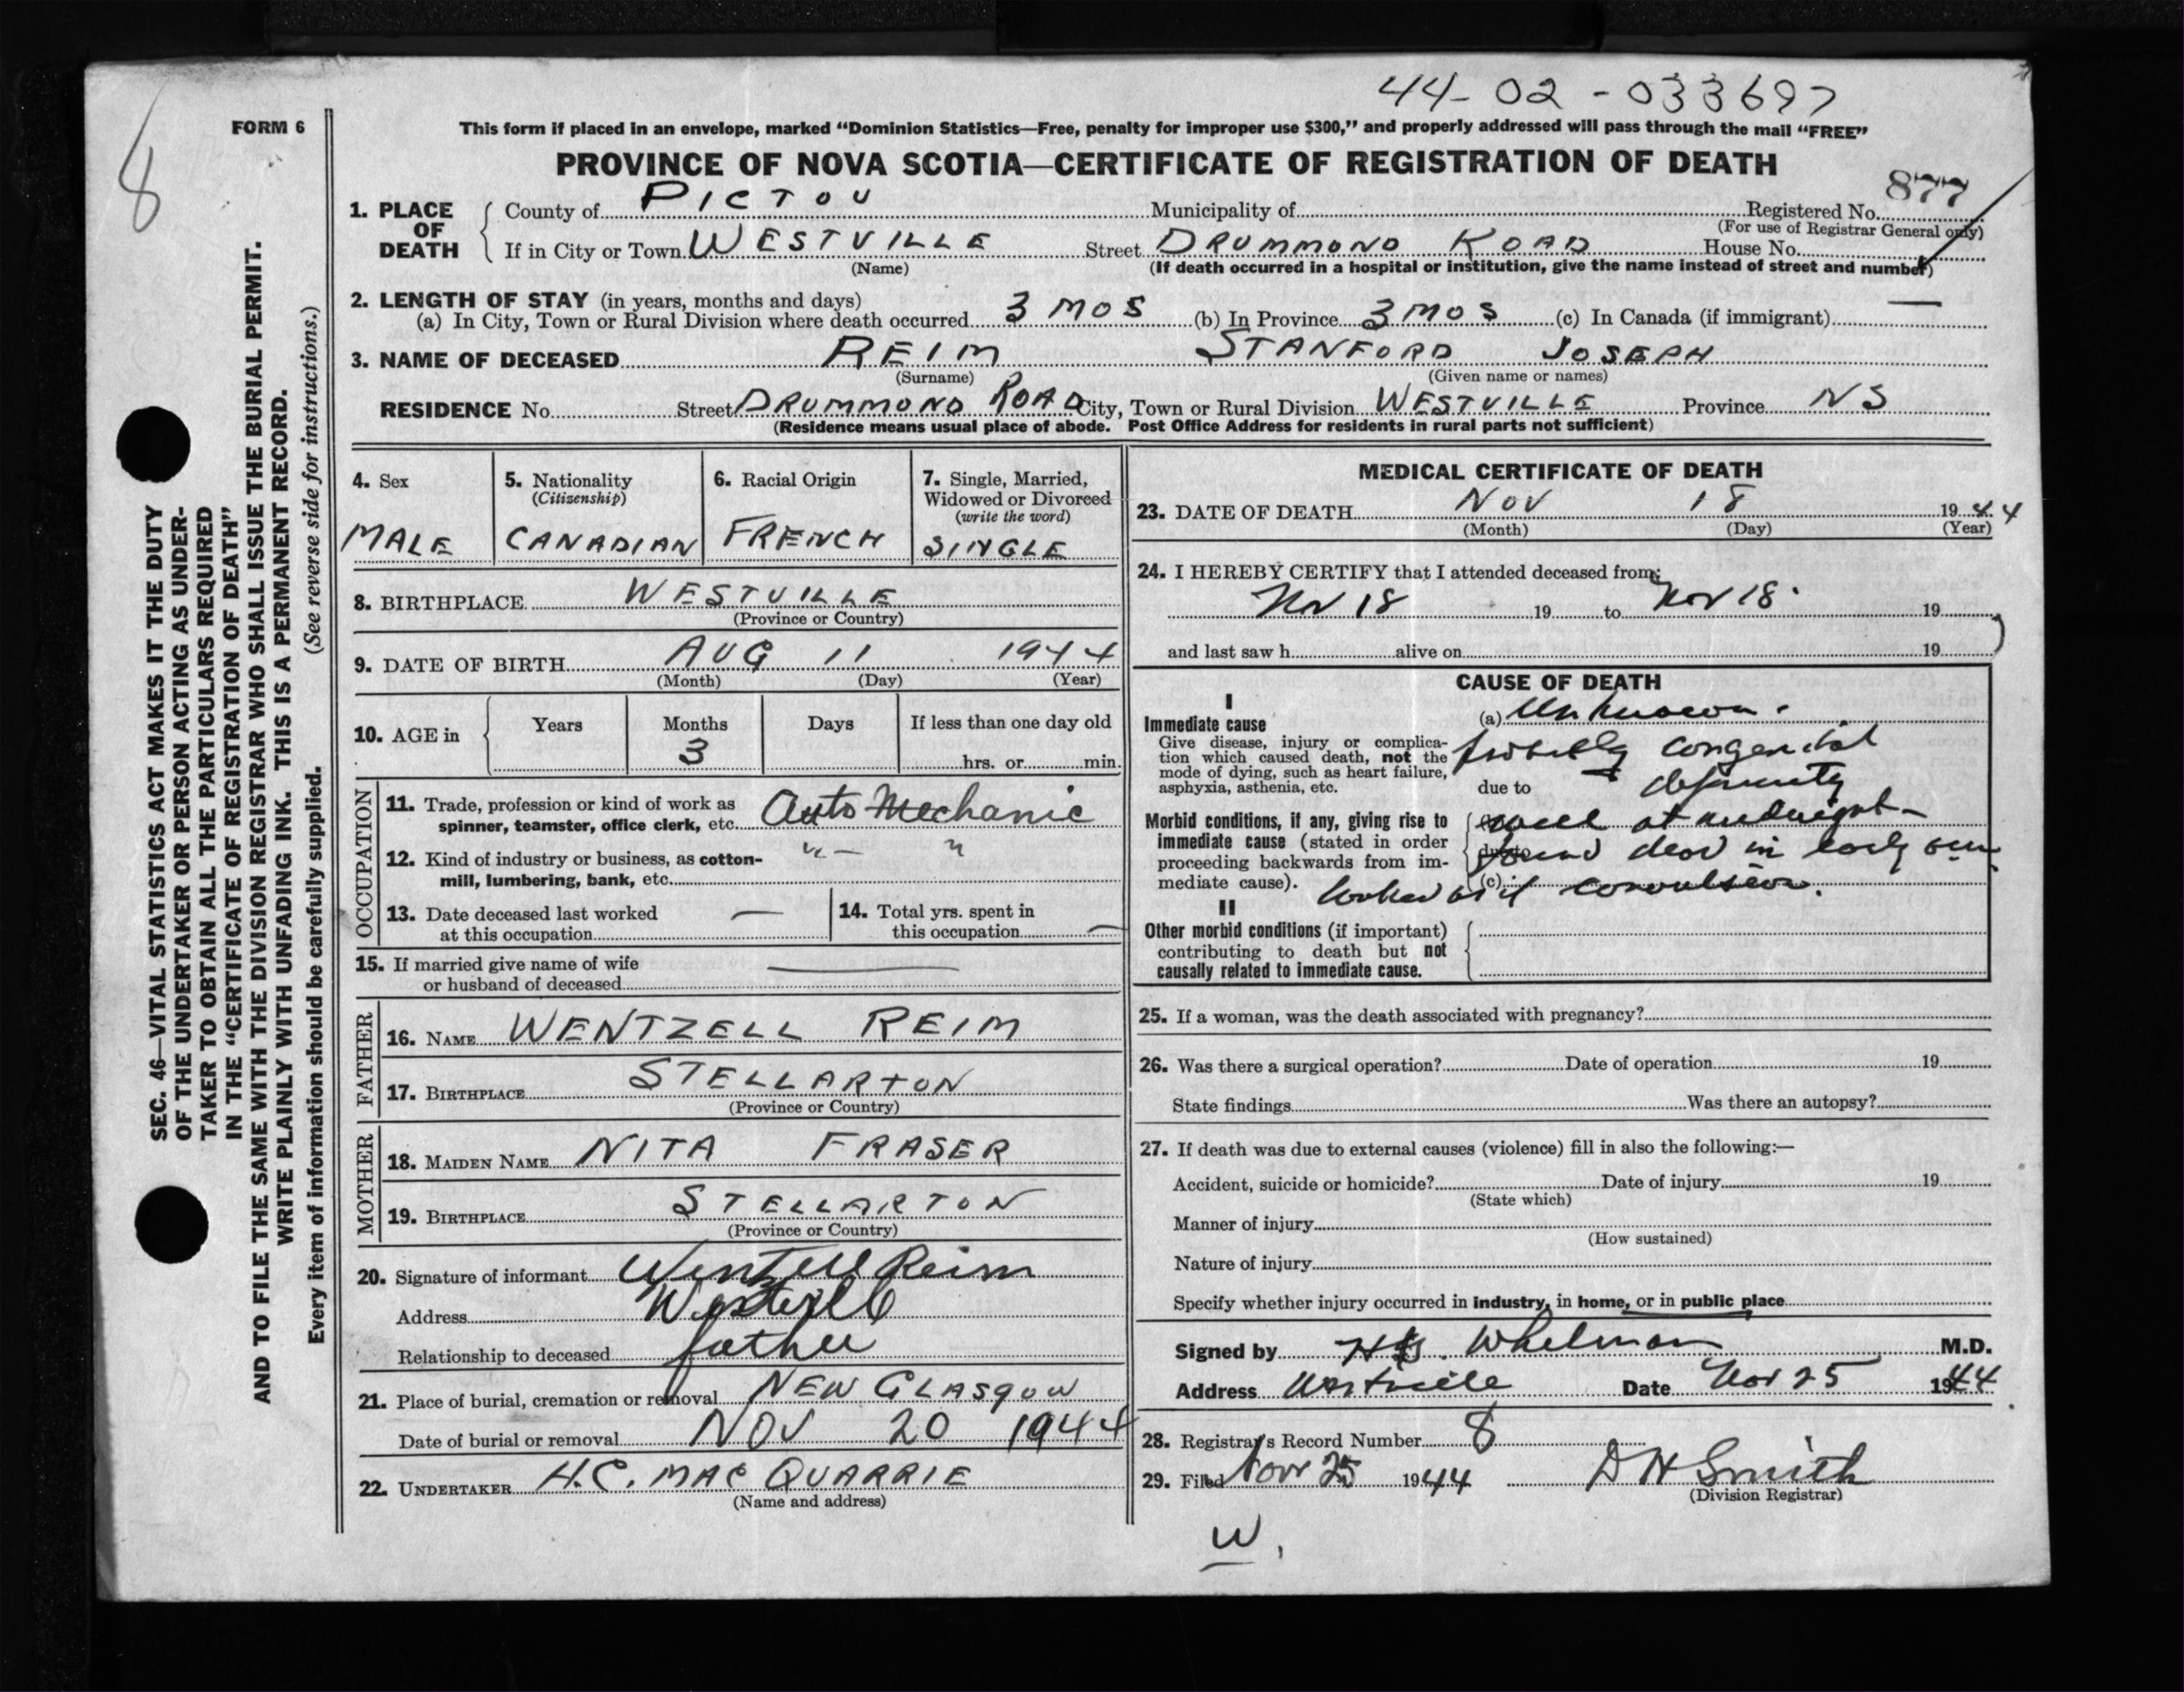 44-02-033697
8
FORM 6
This form if placed in an envelope, marked "Dominion Statistics—Free, penalty for improper use $300," and properly addressed will pass through the mail "FREE"
PROVINCE OF NOVA SCOTIA—CERTIFICATE OF REGISTRATION OF DEATH
877
1. PLACE OF DEATH
County of PICTOU Municipality of Registered No.
(For use of Registrar General only)
If in City or Town WESTVILLE Street DRUMMOND ROAD House No.
(Name) (If death occurred in a hospital or institution, give the name instead of street and number)
2. LENGTH OF STAY (in years, months and days)
(a) In City, Town or Rural Division where death occurred 3 MOS (b) In Province 3 MOS (c) In Canada (if immigrant) —
3. NAME OF DECEASED REIM STANFORD JOSEPH
(Surname) (Given name or names)
RESIDENCE No. Street DRUMMOND ROAD City, Town or Rural Division WESTVILLE Province NS
(Residence means usual place of abode. Post Office Address for residents in rural parts not sufficient)
4. Sex
MALE
5. Nationality
(Citizenship)
CANADIAN
6. Racial Origin
FRENCH
7. Single, Married,
Widowed or Divorced
(write the word)
SINGLE
8. BIRTHPLACE WESTVILLE
(Province or Country)
9. DATE OF BIRTH AUG 11 1944
(Month) (Day) (Year)
10. AGE in Years Months Days If less than one day old
3
hrs. or min.
OCCUPATION
11. Trade, profession or kind of work as
spinner, teamster, office clerk, etc. Auto Mechanic
12. Kind of industry or business, as cotton-
mill, lumbering, bank, etc. " — "
13. Date deceased last worked
at this occupation —
14. Total yrs. spent in
this occupation —
15. If married give name of wife
or husband of deceased —
FATHER
16. NAME WENTZELL REIM
17. BIRTHPLACE STELLARTON
(Province or Country)
MOTHER
18. MAIDEN NAME NITA FRASER
19. BIRTHPLACE STELLARTON
(Province or Country)
20. Signature of informant Wentzell Reim
Address Westville
Relationship to deceased father
21. Place of burial, cremation or removal NEW GLASGOW
Date of burial or removal NOV 20 1944
22. UNDERTAKER H.C. MACQUARRIE
(Name and address)
MEDICAL CERTIFICATE OF DEATH
23. DATE OF DEATH NOV 18 1944
(Month) (Day) (Year)
24. I HEREBY CERTIFY that I attended deceased from:
Nov 18 19 to Nov 18 19
and last saw h alive on 19
CAUSE OF DEATH
I
Immediate cause
Give disease, injury or complica-
tion which caused death, not the
mode of dying, such as heart failure,
asphyxia, asthenia, etc.
(a) Unknown.
probably congenital
due to deformity
Morbid conditions, if any, giving rise to
immediate cause (stated in order
proceeding backwards from im-
mediate cause).
well at midnight—
found dead in early
(c) looked as if convulsion.
II
Other morbid conditions (if important)
contributing to death but not
causally related to immediate cause.
25. If a woman, was the death associated with pregnancy?
26. Was there a surgical operation? Date of operation 19
State findings Was there an autopsy?
27. If death was due to external causes (violence) fill in also the following:—
Accident, suicide or homicide? Date of injury 19
(State which)
Manner of injury
(How sustained)
Nature of injury
Specify whether injury occurred in industry, in home, or in public place
Signed by Whelman M.D.
Address Westville Date Nov 25 1944
28. Registrar's Record Number 8
29. Filed Nov 25 1944 D H Smith
(Division Registrar)
W.
SEC. 46—VITAL STATISTICS ACT MAKES IT THE DUTY
OF THE UNDERTAKER OR PERSON ACTING AS UNDER-
TAKER TO OBTAIN ALL THE PARTICULARS REQUIRED
IN THE "CERTIFICATE OF REGISTRATION OF DEATH"
AND TO FILE THE SAME WITH THE DIVISION REGISTRAR WHO SHALL ISSUE THE BURIAL PERMIT.
WRITE PLAINLY WITH UNFADING INK. THIS IS A PERMANENT RECORD.
Every item of information should be carefully supplied. (See reverse side for instructions.)